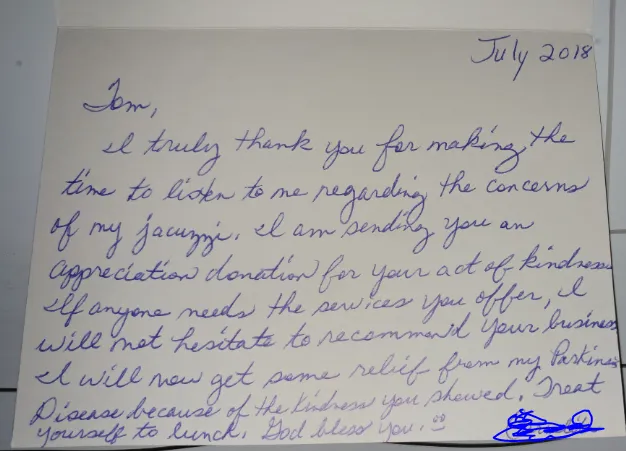 July 2018
Tom,
I truly thank you for making the
time to listen to me regarding the concerns
of my jacuzzi. I am sending you an
appreciation donation for your act of kindness
If anyone needs the services you offer, I
will not hesitate to recommend your business
I will now get some relief from my Parkins
Disease because of the kindness you showed. Treat
yourself to lunch. God bless you.